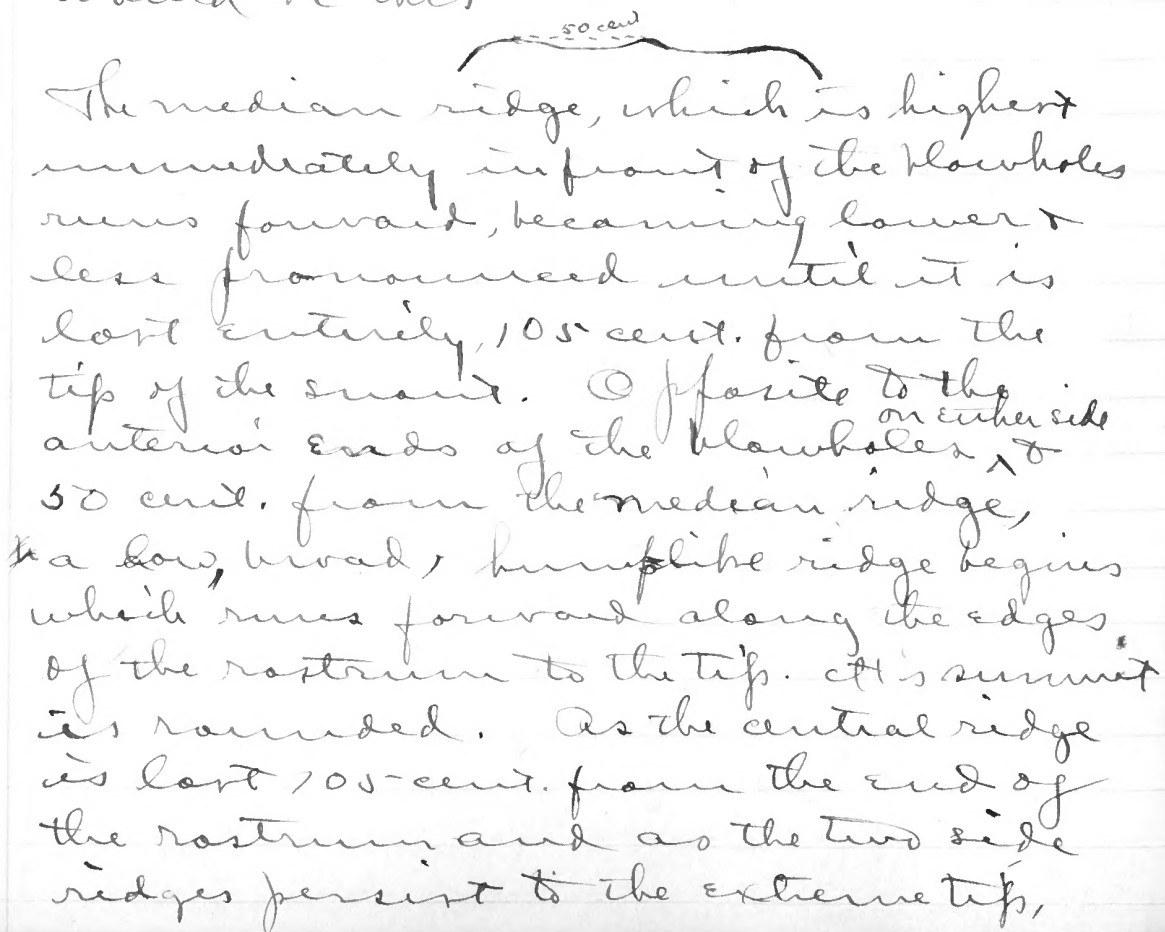 50 cent
The median ridge, which is highest
immediately in front of the blowholes
runs forward, becoming lower &
less pronounced until it is
lost entirely, 105 cent. from the
tip of the snout. Opposite to the
on either side
anterior ends of the blowholes ^ &
50 cent. from the median ridge,
a low, broad, humplike ridge begins
which runs forward along the edges
of the rostrum to the tip. Its summit
is rounded. As the central ridge
is lost 105 cent. from the end of
the rostrum and as the two side
ridges persist to the extreme tip,